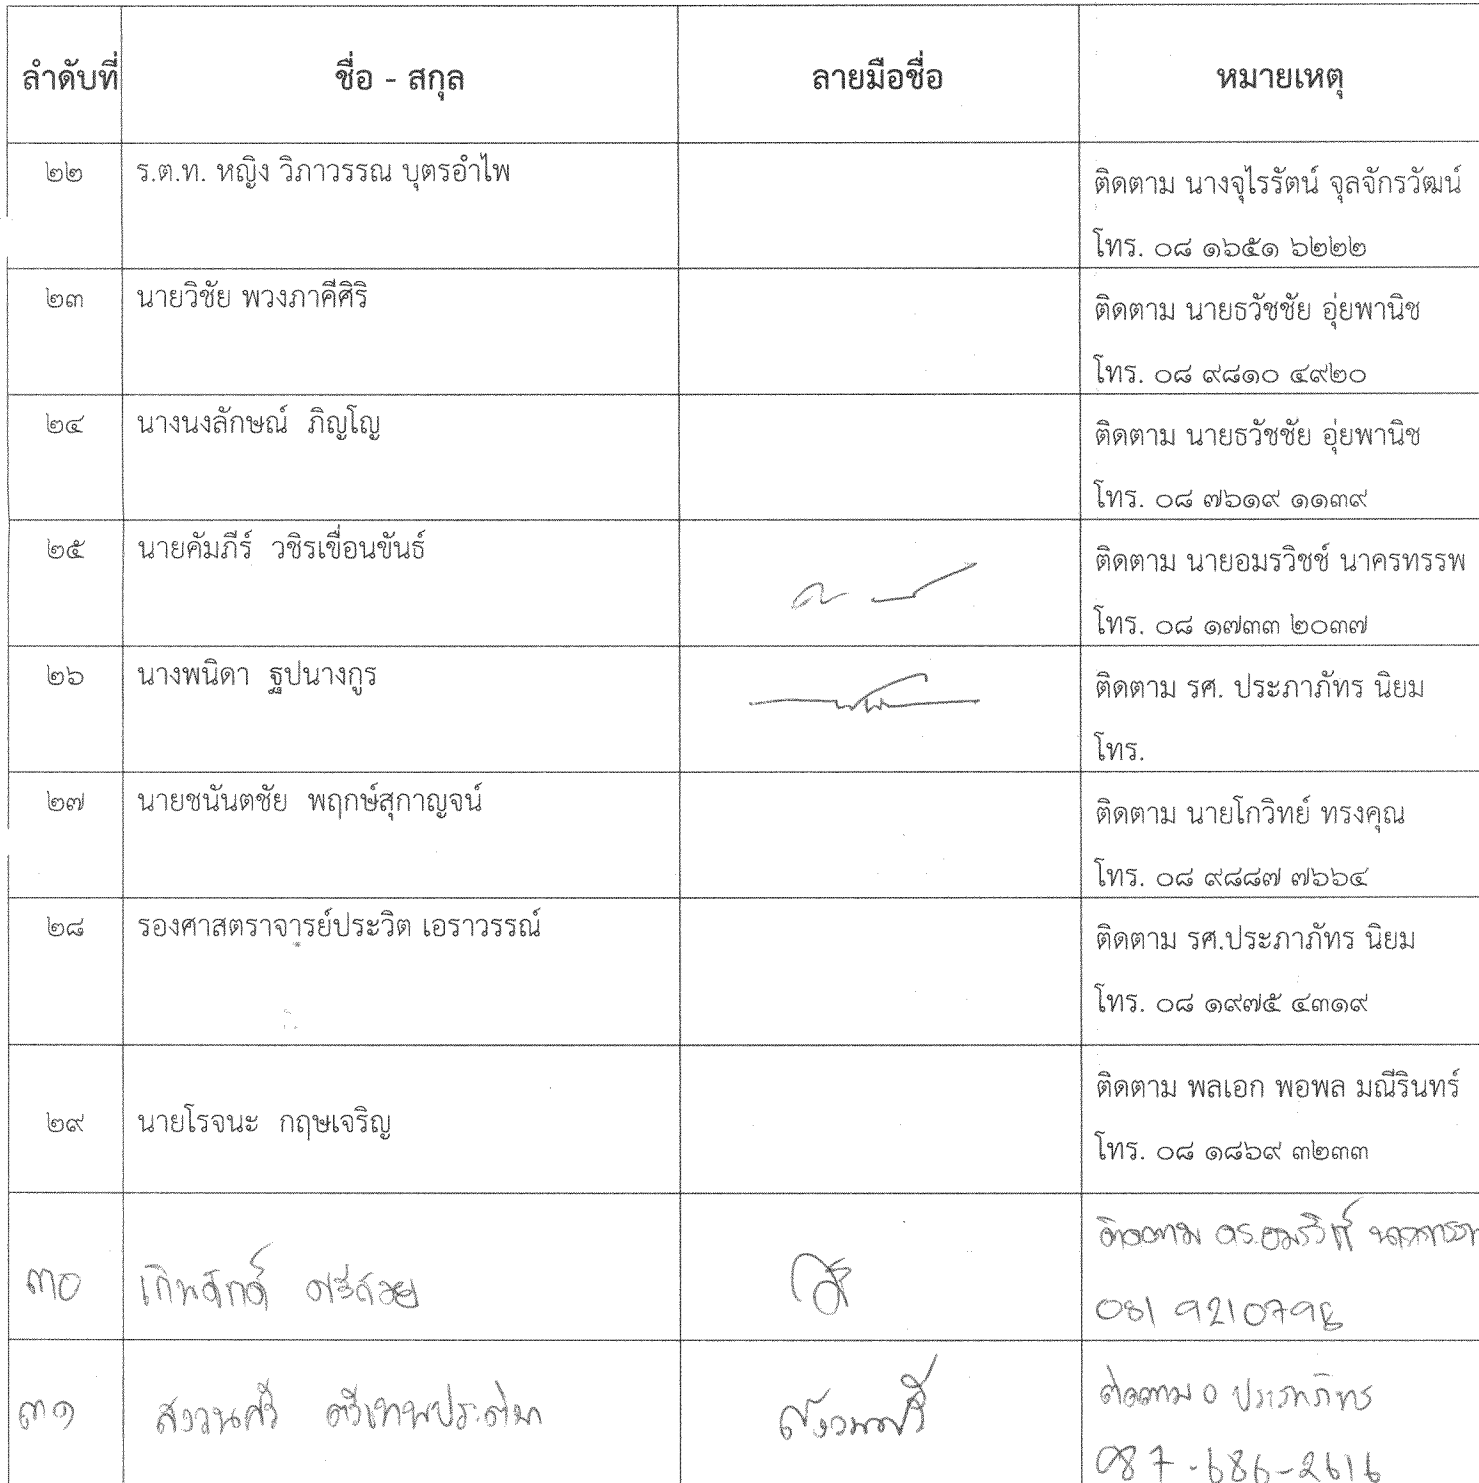 ลำดับที่ ชื่อ - สกุล ลายมือชื่อ หมายเหตุ
๒๒ ร.ต.ท. หญิง วิภาวรรณ บุตรอำไพ ติดตาม นางจุไรรัตน์ จุลจักรวัฒน์
โทร. ๐๘ ๑๖๕๑ ๖๒๒๒
๒๓ นายวิชัย พวงภาคีศิริ ติดตาม นายธวัชชัย อุ่ยพานิช
โทร. ๐๘ ๙๘๑๐ ๔๙๒๐
๒๔ นางนงลักษณ์ ภิญโญ ติดตาม นายธวัชชัย อุ่ยพานิช
โทร. ๐๘ ๗๖๑๙ ๑๑๓๙
๒๕ นายคัมภีร์ วชิรเขื่อนขันธ์ ติดตาม นายอมรวิชช์ นาครทรรพ
โทร. ๐๘ ๑๗๓๓ ๒๐๓๗
๒๖ นางพนิดา ฐปนางกูร ติดตาม รศ. ประภาภัทร นิยม
โทร.
๒๗ นายชนันตชัย พฤกษ์สุกาญจน์ ติดตาม นายโกวิทย์ ทรงคุณ
โทร. ๐๘ ๙๘๘๗ ๗๖๖๔
๒๘ รองศาสตราจารย์ประวิต เอราวรรณ์ ติดตาม รศ.ประภาภัทร นิยม
โทร. ๐๘ ๑๙๗๕ ๔๓๑๙
๒๙ นายโรจนะ กฤษเจริญ ติดตาม พลเอก พอพล มณีรินทร์
โทร. ๐๘ ๑๘๖๙ ๓๒๓๓
๓๐ ติดตาม ดร.อมรวิชช์
๓๑ ติดตาม
087-686-2616